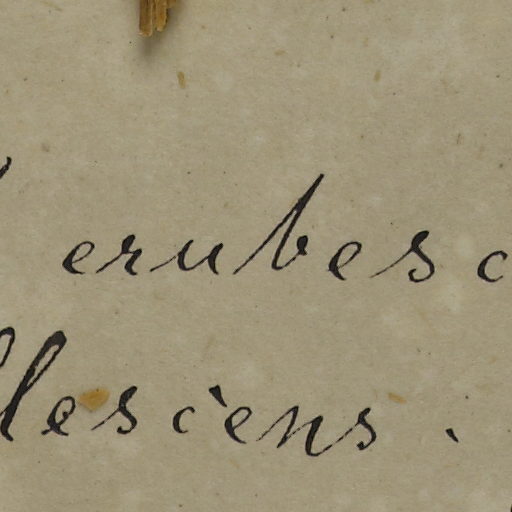 erubesc
llescens.